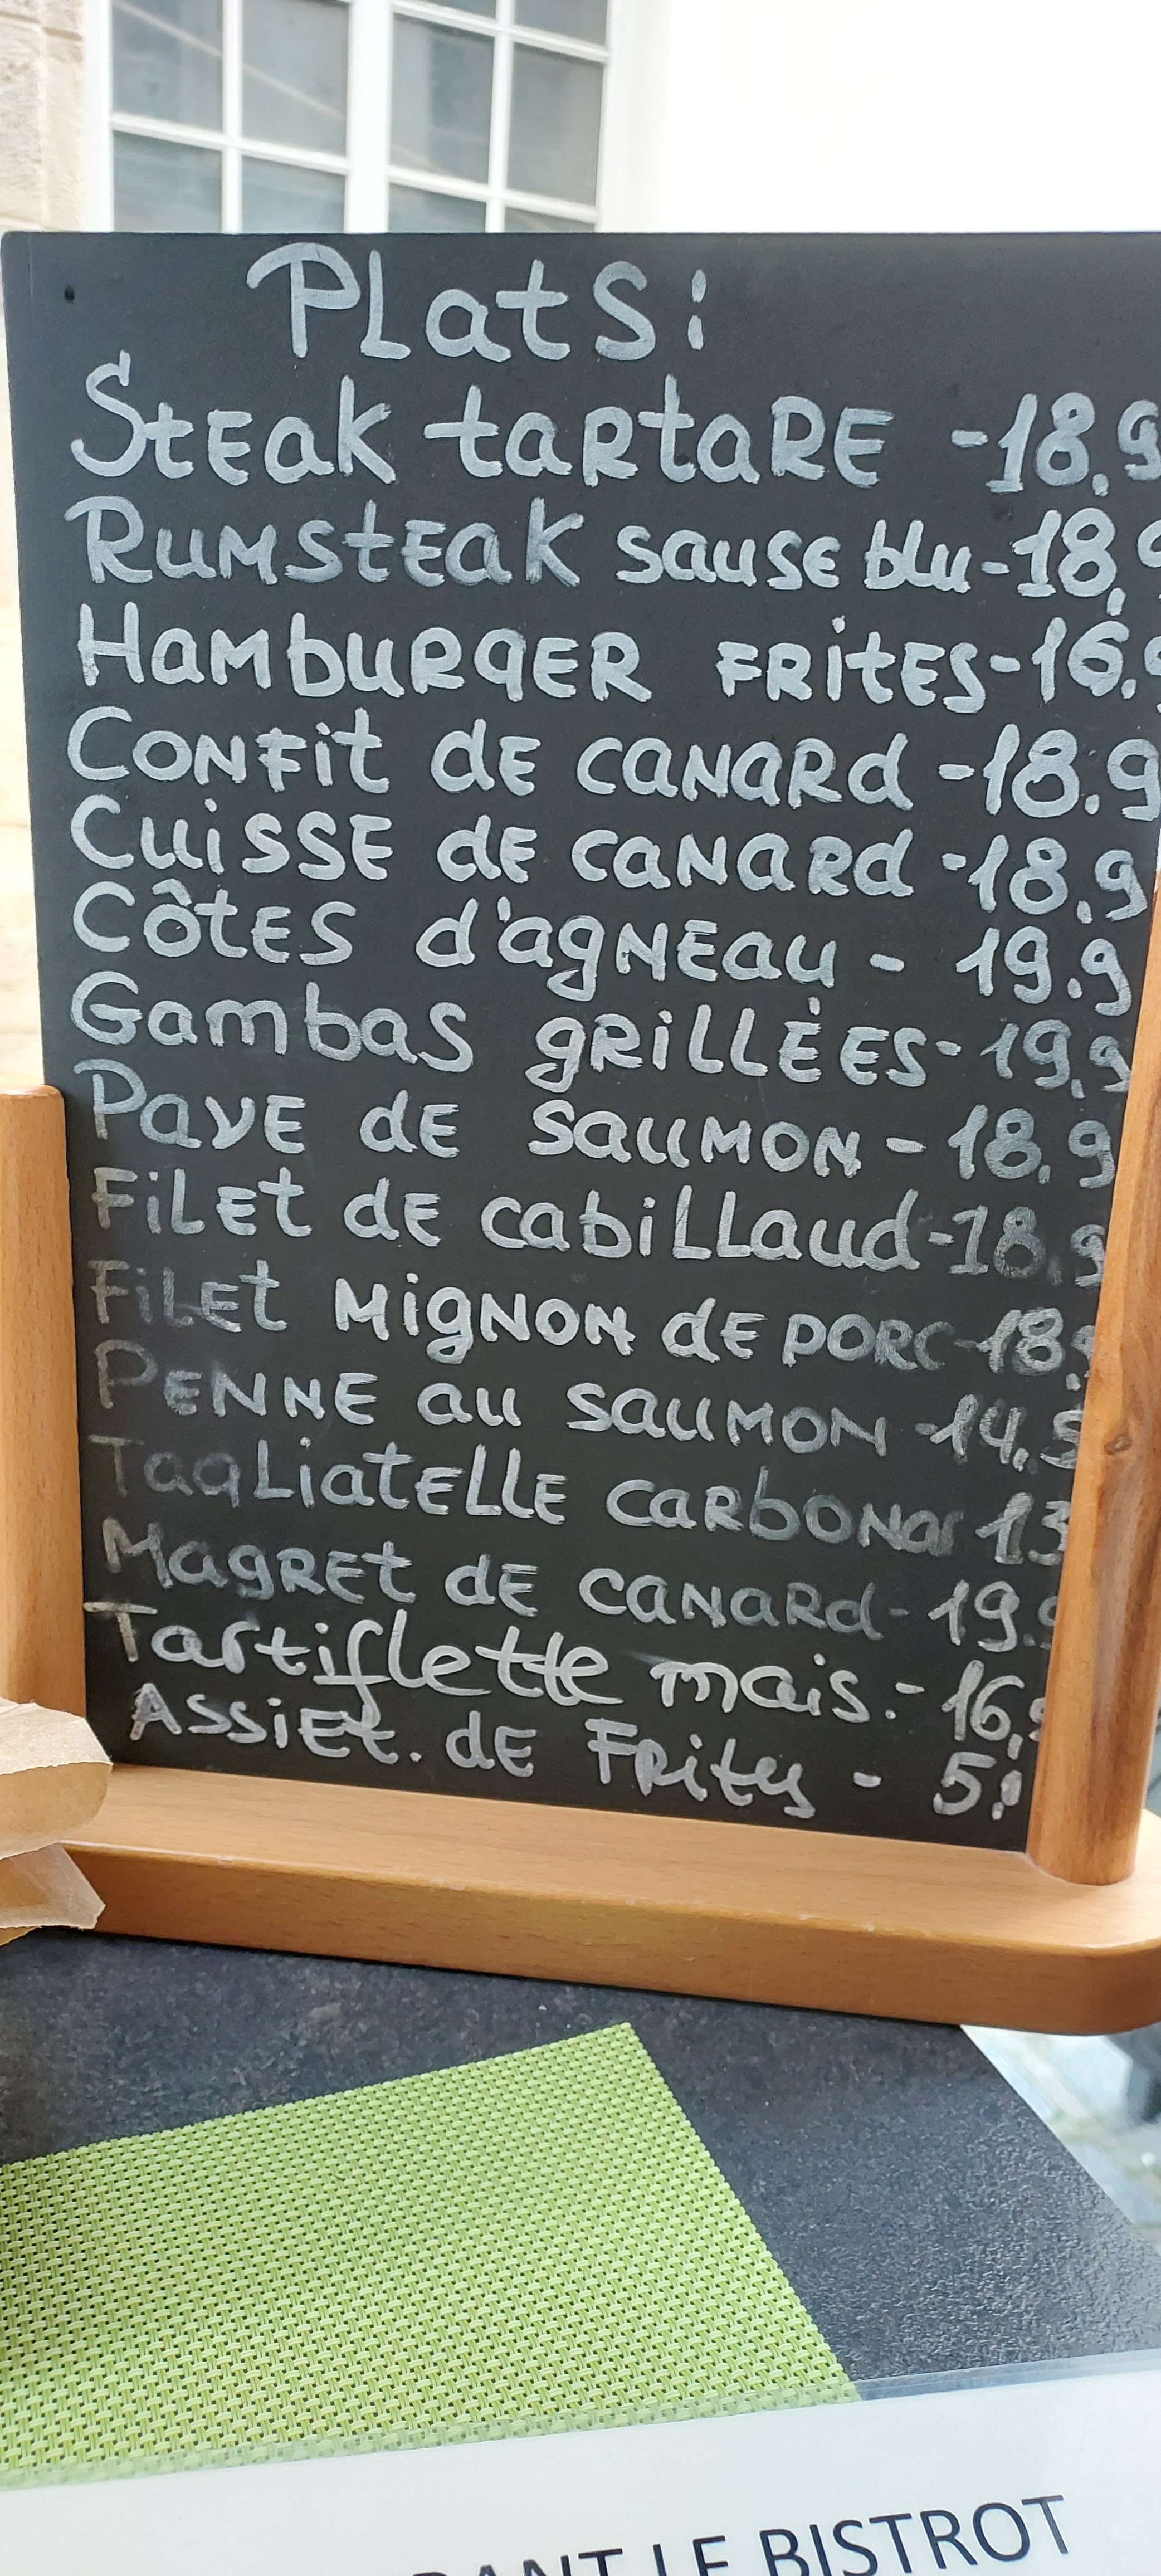 Plats:
Steak tartare - 18,9
Rumsteak sause blu - 18,9
Hamburger frites - 16,9
Confit de canard - 18.9
Cuisse de canard - 18,9
Côtes d'agneau - 19.9
Gambas grillées - 19,9
Pave de saumon - 18,9
Filet de cabillaud - 18,9
Filet mignon de porc - 18
Penne au saumon - 14,5
Tagliatelle carbonar 13
Magret de canard - 19
Tartiflette mais. - 16,
Assiet. de frites - 5,
RANT LE BISTROT